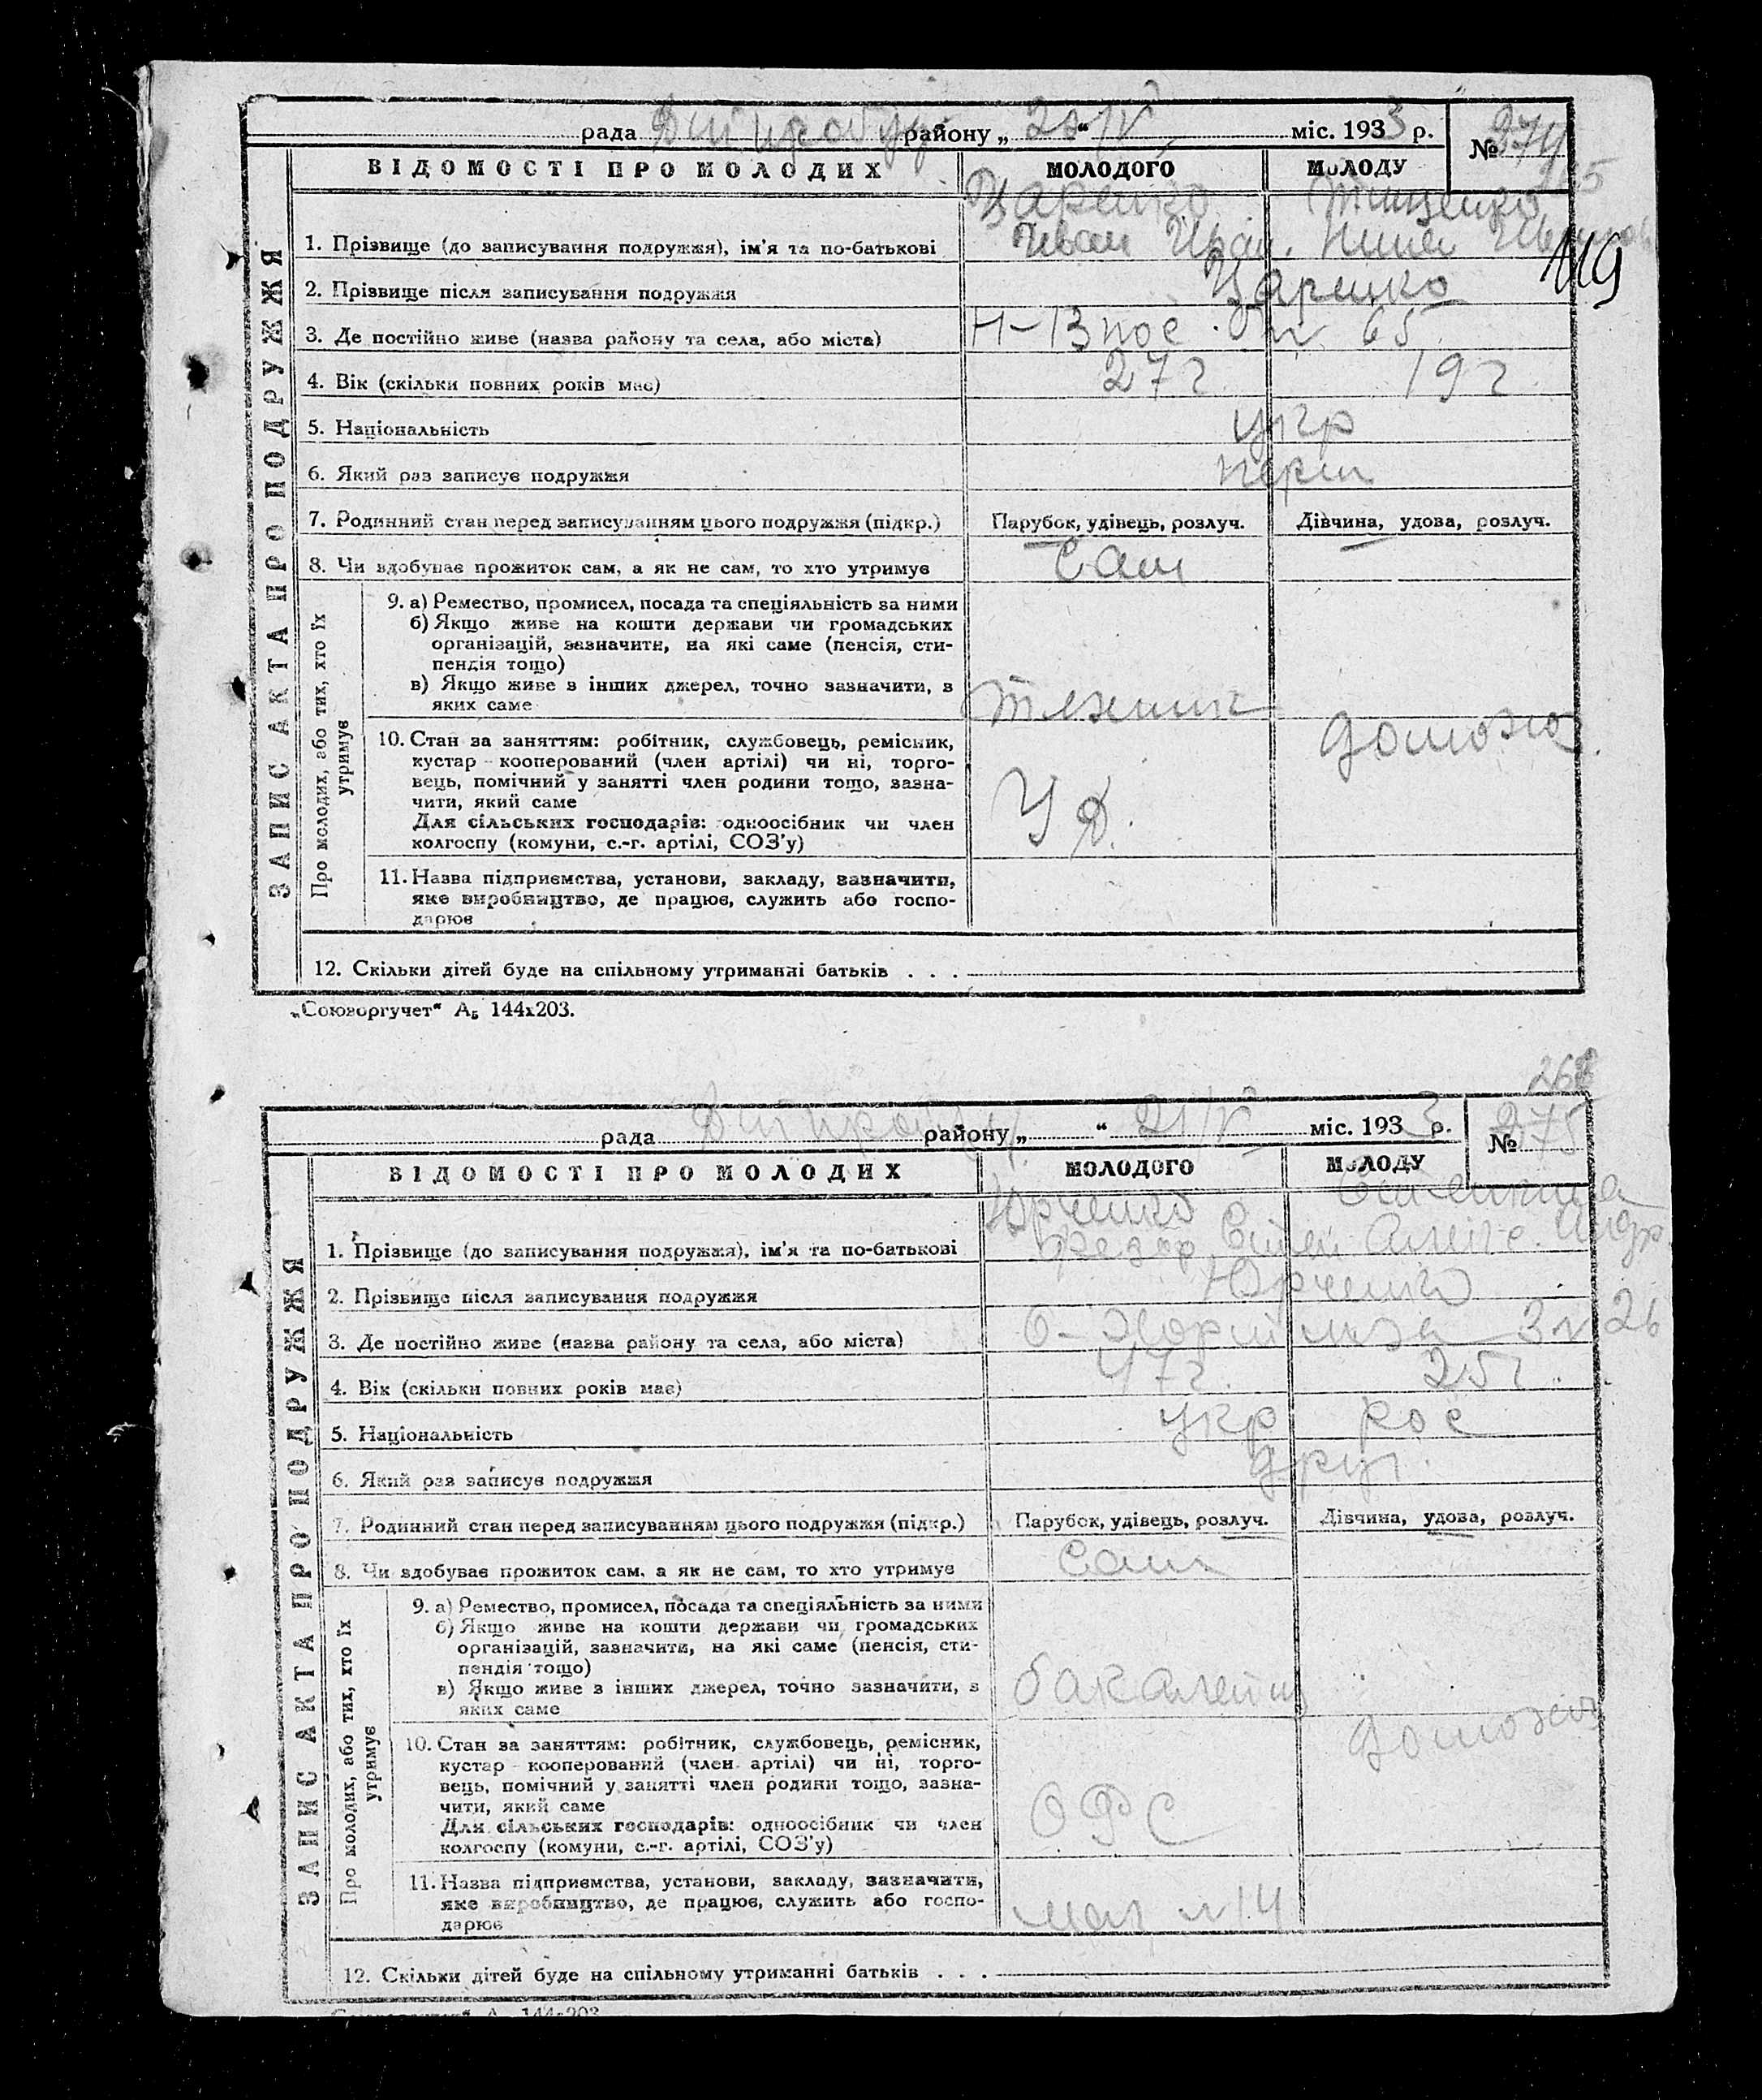 рада району „ 20/IV “ міс. 1933 р. № 274
265
ВІДОМОСТІ ПРО МОЛОДИХ МОЛОДОГО МОЛОДУ
ЗАПИС АКТА ПРО ПОДРУЖЖЯ
Царенко Тищенко
1. Прізвище (до записування подружжя), ім'я та по-батькові Иван Иван.
119
2. Прізвище після записування подружжя Царенко
3. Де постійно живе (назва району та села, або міста) 65
4. Вік (скільки повних років має) 27 г 19 г
5. Національність укр
6. Який раз записує подружжя перш
7. Родинний стан перед записуванням цього подружжя (підкр.) Парубок, удівець, розлуч. Дівчина, удова, розлуч.
8. Чи здобуває прожиток сам, а як не сам, то хто утримує Сам
Про молодих, або тих, хто їх утримує
9. а) Ремество, промисел, посада та спеціяльність за ними
б) Якщо живе на кошти держави чи громадських
організацій, зазначити, на які саме (пенсія, сти-
пендія тощо)
в) Якщо живе з інших джерел, точно зазначити, з
яких саме техник
10. Стан за заняттям: робітник, службовець, ремісник, домохо.
кустар - кооперований (член артілі) чи ні, торго-
вець, помічний у занятті член родини тощо, зазна-
чити, який саме
Для сільських господарів: одноосібник чи член
колгоспу (комуни, с.-г. артілі, СОЗ'у)
11. Назва підприємства, установи, закладу, зазначити,
яке виробництво, де працює, служить або госпо-
дарює
12. Скільки дітей буде на спільному утриманні батьків . . .
„Союзоргучет“ А₅ 144х203.
рада району „ “ 21/IV міс. 1933 р. № 275
ВІДОМОСТІ ПРО МОЛОДИХ МОЛОДОГО МОЛОДУ
ЗАПИС АКТА ПРО ПОДРУЖЖЯ
Юрченко
1. Прізвище (до записування подружжя), ім'я та по-батькові Федор Андр.
2. Прізвище після записування подружжя Юрченко
3. Де постійно живе (назва району та села, або міста) 26
4. Вік (скільки повних років має) 47 г. 25 г.
5. Національність укр рос
6. Який раз записує подружжя друг.
7. Родинний стан перед записуванням цього подружжя (підкр.) Парубок, удівець, розлуч. Дівчина, удова, розлуч.
8. Чи здобуває прожиток сам, а як не сам, то хто утримує Сам
Про молодих, або тих, хто їх утримує
9. а) Ремество, промисел, посада та спеціяльність за ними
б) Якщо живе на кошти держави чи громадських
організацій, зазначити, на які саме (пенсія, сти-
пендія тощо)
в) Якщо живе з інших джерел, точно зазначити, з
яких саме бакалейщ
10. Стан за заняттям: робітник, службовець, ремісник, домохоз
кустар - кооперований (член артілі) чи ні, торго-
вець, помічний у занятті член родини тощо, зазна-
чити, який саме
Для сільських господарів: одноосібник чи член
колгоспу (комуни, с.-г. артілі, СОЗ'у)
11. Назва підприємства, установи, закладу, зазначити,
яке виробництво, де працює, служить або госпо-
дарює маг №14
12. Скільки дітей буде на спільному утриманні батьків . . .